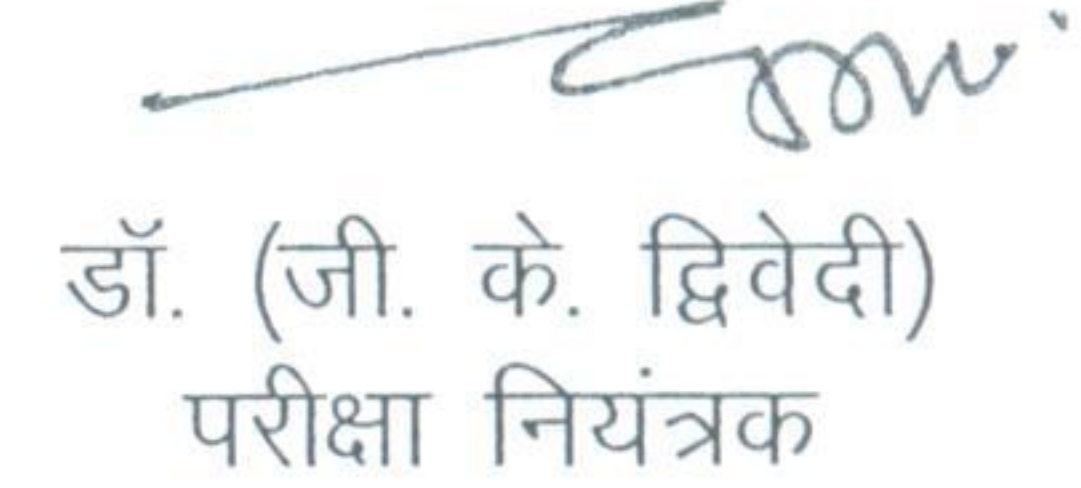 डॉ. (जी. के. द्विवेदी)
परीक्षा नियंत्रक